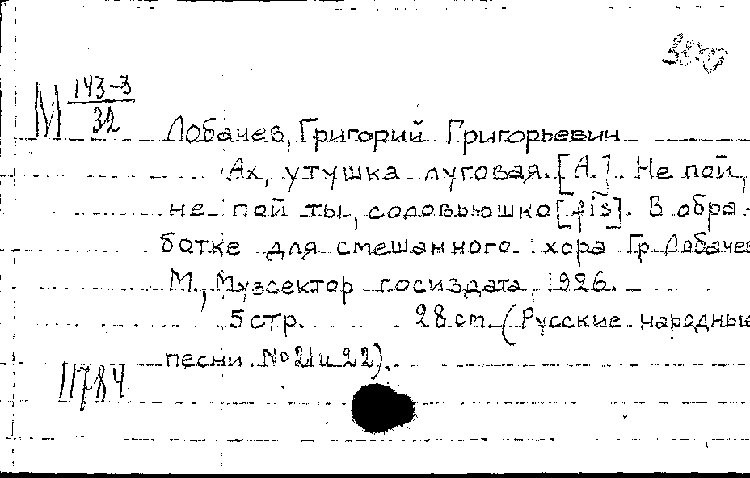 М 143-3
32
Лобачев, Григорий Григорьевич
Ах, утушка луговая. [A.]. Не пой,
не пой ты, соловьюшко [fis]. В обра-
ботке для смешанного хора Гр. Лобачев
М., Музсектор госиздата, 1926.
5 стр. 28 cm. (Русские народные
песни №21 и 22).
11784